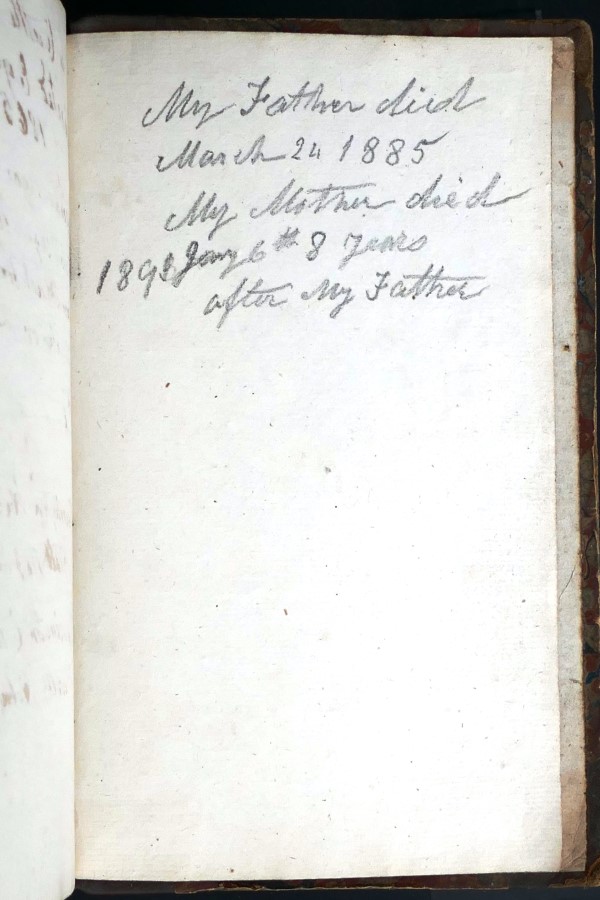 My Father died
March 24 1885
My Mother died
1893 Jany 6th 8 years
after My Father